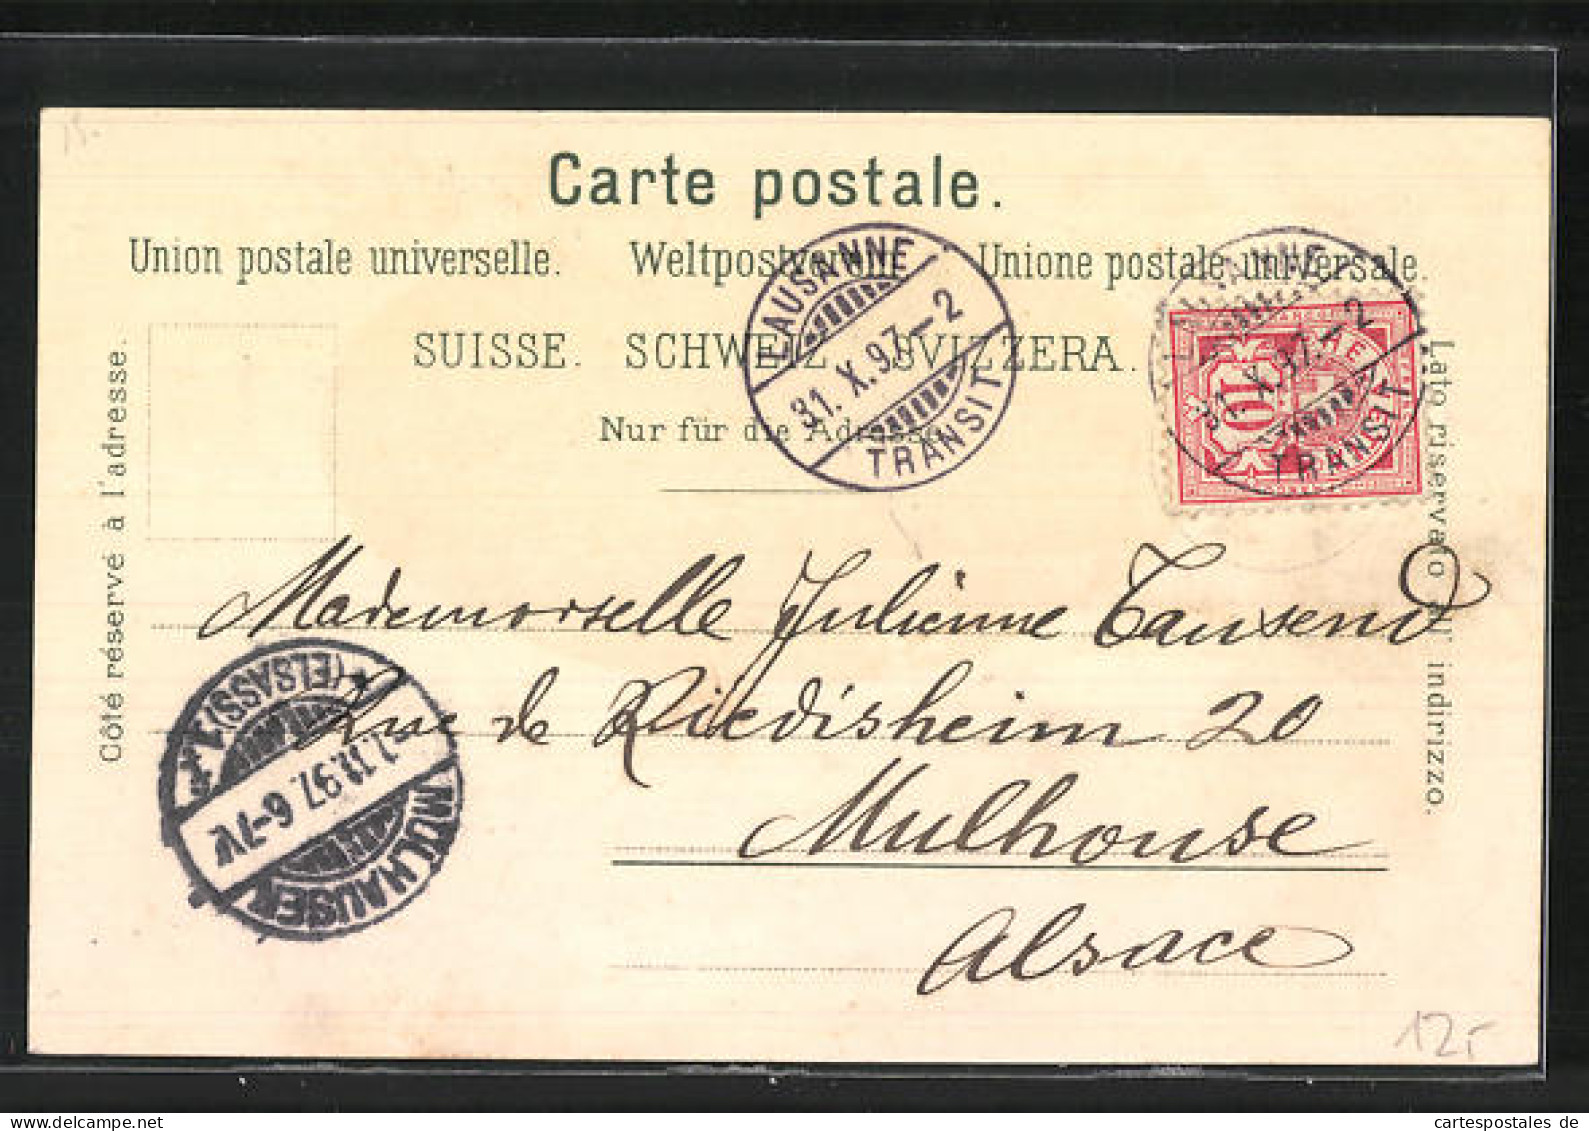 15.
Carte postale.
Union postale universelle. Weltpostverein. Unione postale universale.
SUISSE. SCHWEIZ. SVIZZERA.
Nur für die Adresse.
Côté réservé à l'adresse.
Lato riservato all' indirizzo.
LAUSANNE
31. X. 97.–2
TRANSIT
LAUSANNE
31. X. 97.–2
TRANSIT
10
Mademoiselle Julienne Tausend
Rue de Riedisheim 20
Mulhouse
Alsace
MÜLHAUSEN
1.11.97. 6-7N
(ELSASS) 1.
12,-
cartespostales de